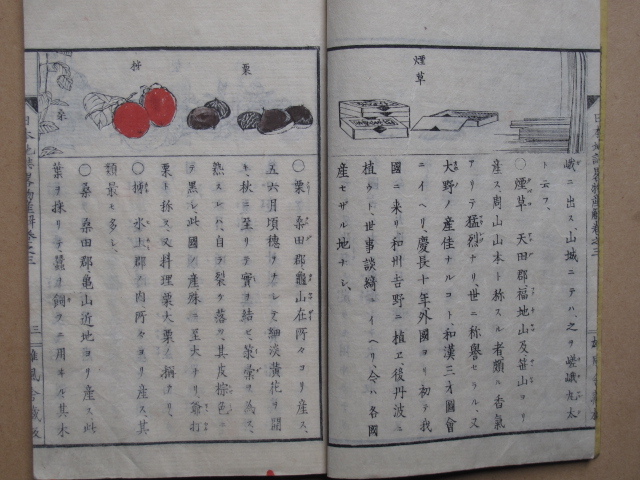 煙草
嵯ニ出ス、山城ニテハ、之ヲ嵯峨丸太
ト云フ、
〇煙草 天田郡福地山及笹山ヨリ
産ス周山山本ト称スル者頗ル香氣
アリテ猛烈ナリ、世ニ称譽セラル、又
大野ノ産佳ナルコト、和漢三才圖會
ニイヘリ、慶長十年外國ヨリ初テ我
國ニ来リ和州吉野ニ植ヱ後丹波ニ
植ウト、世事談綺ニイヘリ、今ハ各國
産セザル地ナシ、
栗
柿
〇栗 桑田郡龜山在所々ヨリ産ス、
五六月頃穂ヲナシテ細淡黄花ヲ開
キ、秋ニ至リテ實ヲ結ビ、梂彙ヲ為ス、
熟スレハ、自ラ裂ケ落ツ、其皮棕色ニ
テ黒シ此國ノ産殊ニ至大ナリ、爺打
栗ト称ス、又料理栗大栗ノ稱アリ、
〇柿 氷上郡ノ内所々ヨリ産ス其
類最モ多シ、
〇桑 桑田郡龜山近地ヨリ産ス、此
葉ヲ採リテ蠶ヲ飼フニ用ヰル其木
桑
三